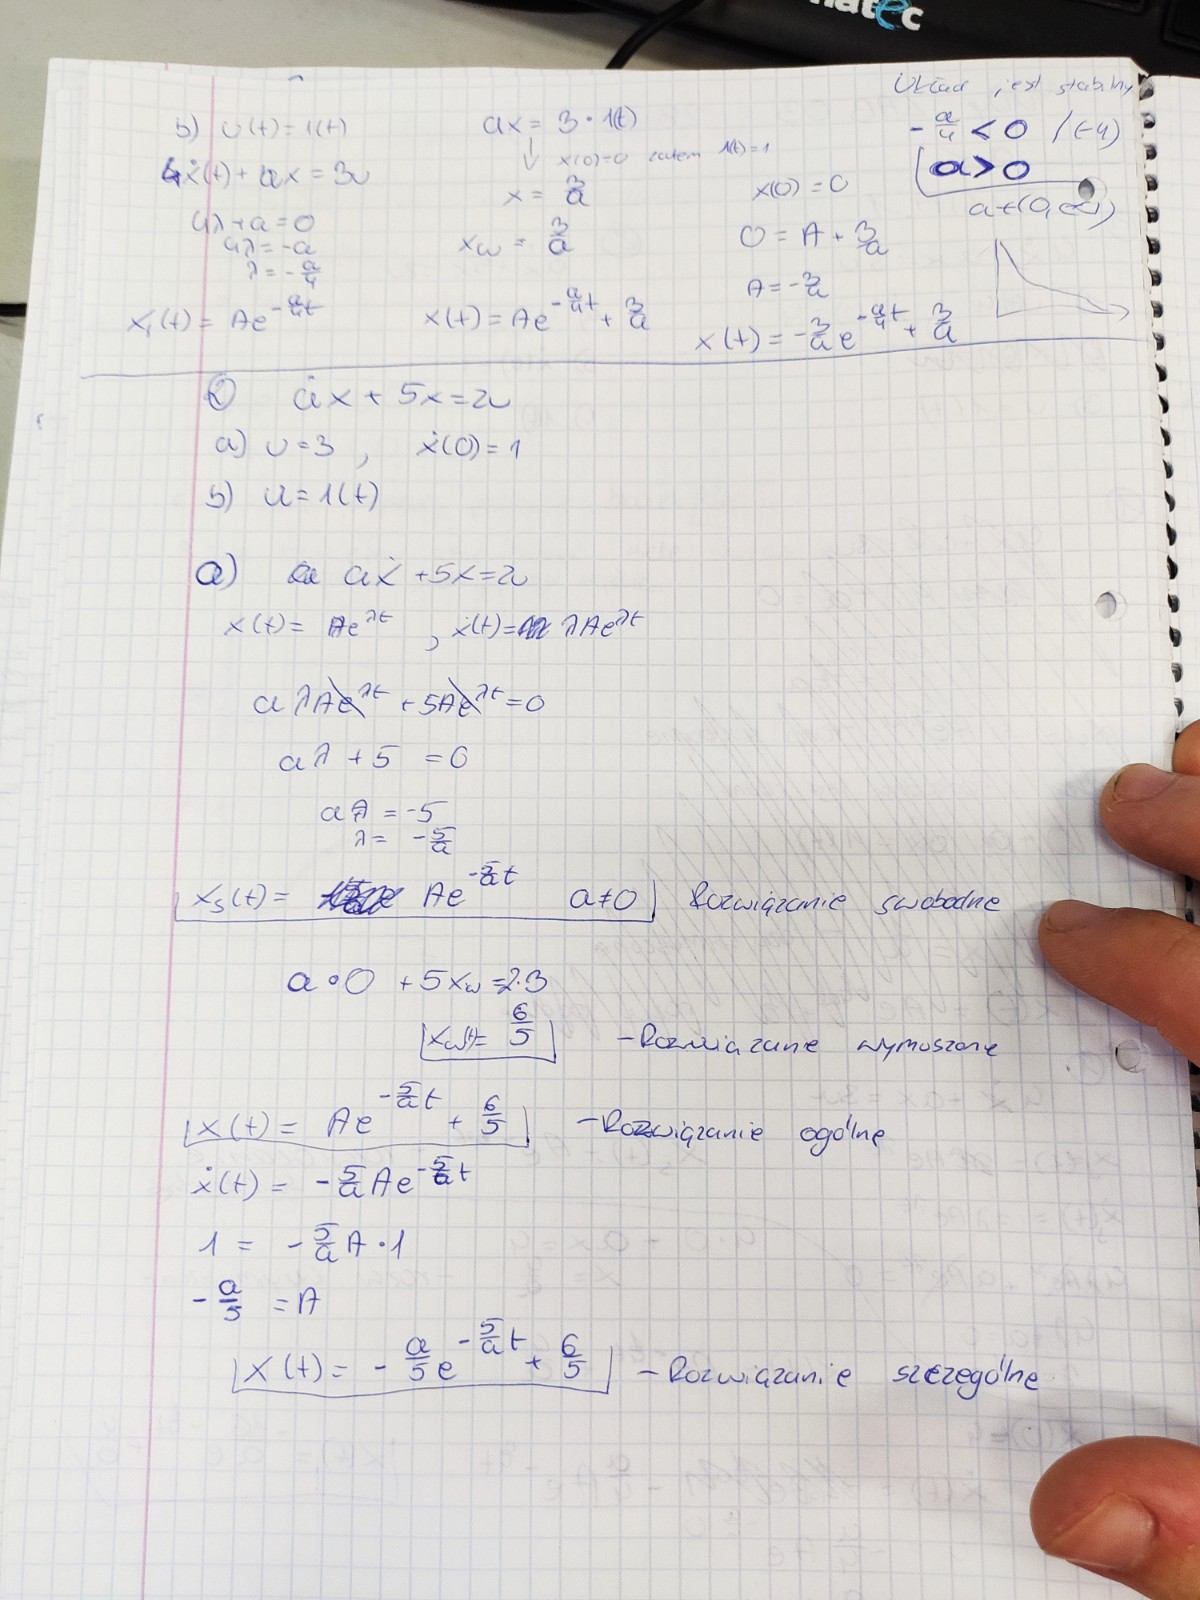 natec
Układ jest stabilny
b) u(t) = 1(t)
4ẋ(t) + ax = 3u
4λ + a = 0
4λ = -a
λ = -a/4
x₁(t) = Ae^(-a/4 t)
ax = 3 · 1(t)
↓ x(0)=0 zatem 1(t)=1
x = 3/a
xw = 3/a
x(t) = Ae^(-a/4 t) + 3/a
x(0) = 0
0 = A + 3/a
A = -3/a
x(t) = -3/a e^(-a/4 t) + 3/a
-a/4 < 0 /(-4)
a > 0
a ∈ (0, ∞)
② aẋ + 5x = 2u
a) u = 3 , ẋ(0) = 1
b) u = 1(t)
a) aẋ + 5x = 2u
x(t) = Ae^(λt) , ẋ(t) = λAe^(λt)
aλAe^(λt) + 5Ae^(λt) = 0
aλ + 5 = 0
aλ = -5
λ = -5/a
xs(t) = Ae^(-5/a t) a≠0 Rozwiązanie swobodne
a·0 + 5xw = 2·3
xw(t) = 6/5 - Rozwiązanie wymuszone
x(t) = Ae^(-5/a t) + 6/5 - Rozwiązanie ogólne
ẋ(t) = -5/a Ae^(-5/a t)
1 = -5/a A · 1
-a/5 = A
x(t) = -a/5 e^(-5/a t) + 6/5 - Rozwiązanie szczególne